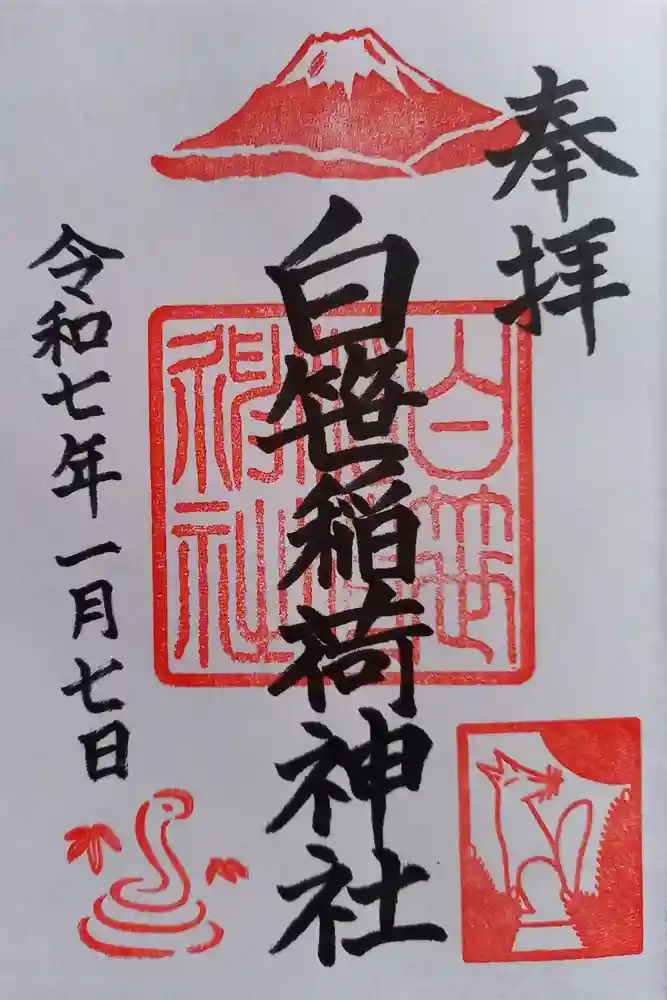 奉拝
白笹稲荷神社
白笹
稲荷
神社
令和七年一月七日